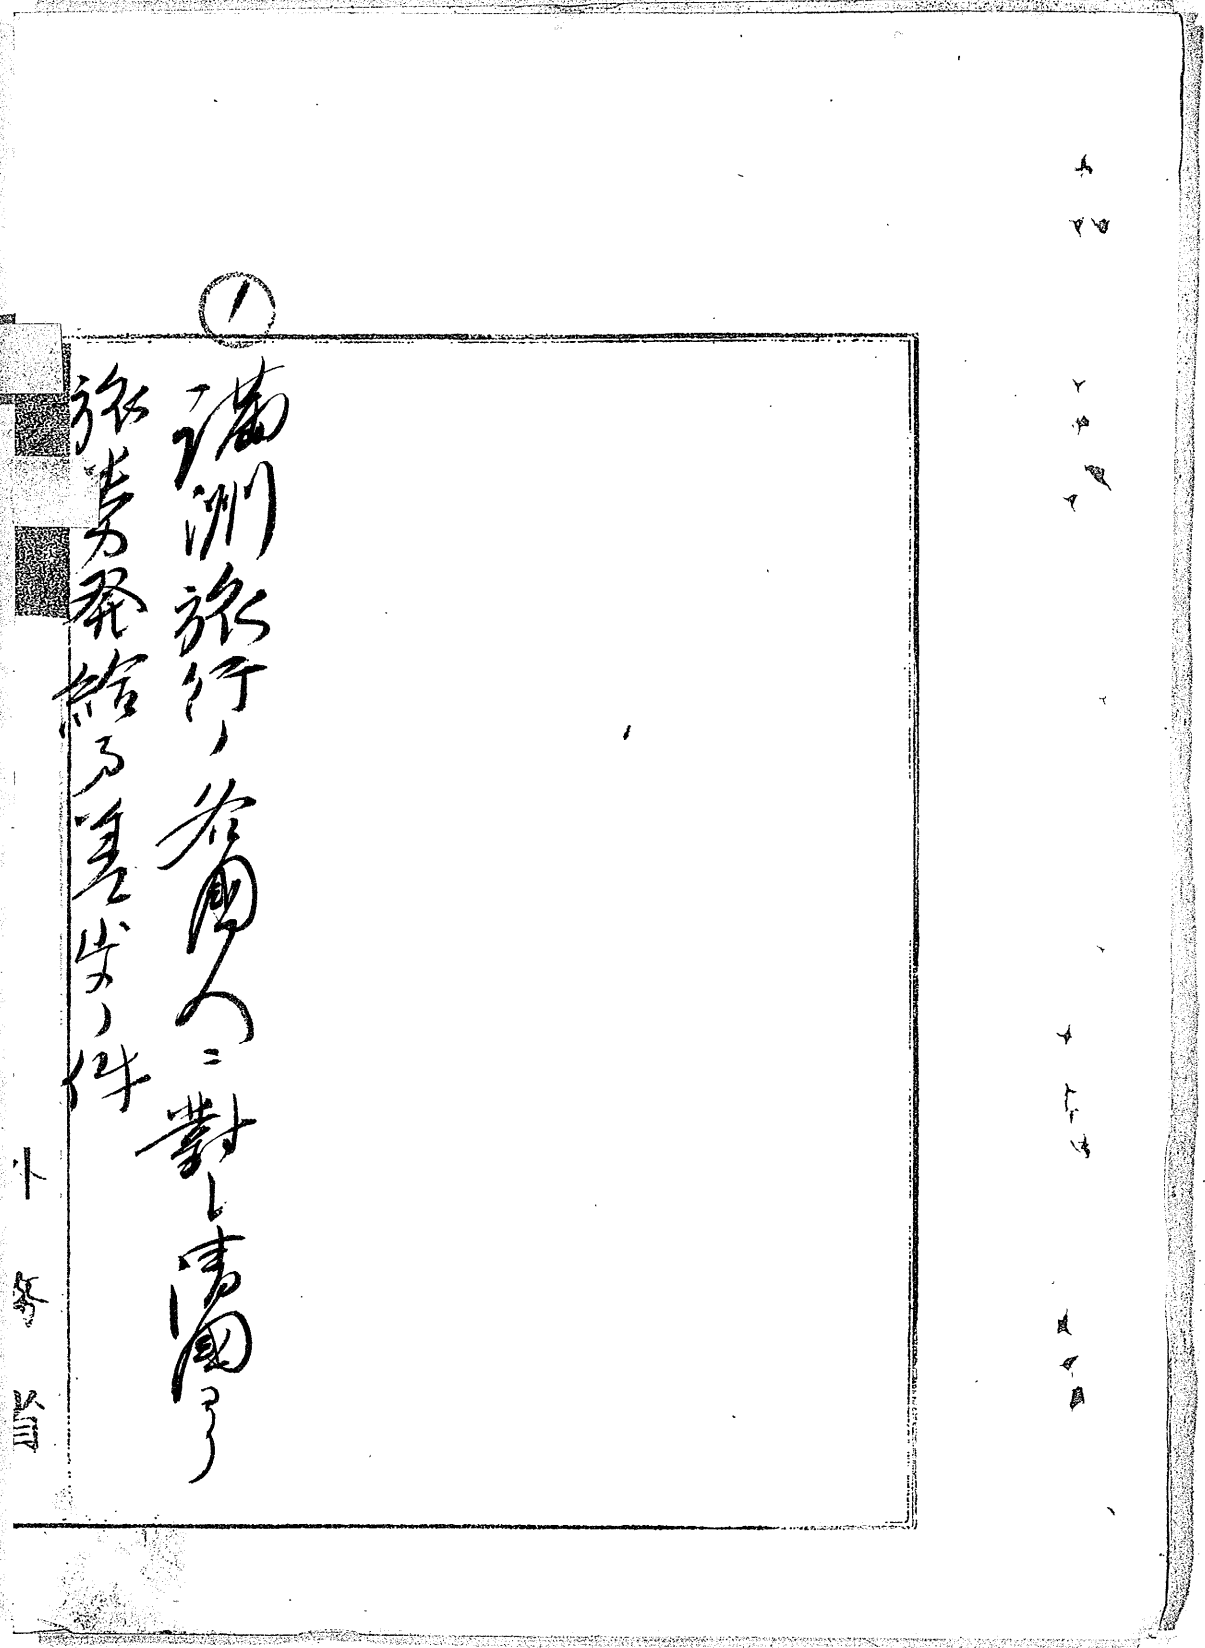 1
満洲旅行ノ各國人ニ對シ清國ヨリ
旅券発給方差出ノ件
外務省